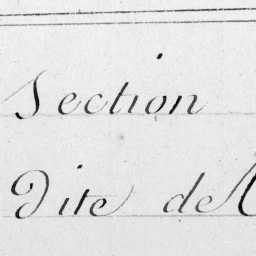 Section
Dite de